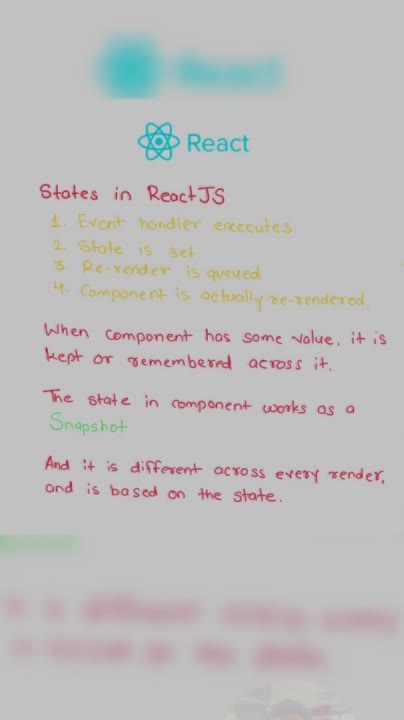 React
States in ReactJS
1. Event handler executes.
2. State is set
3 Re-render is queued
4. Component is actually re-rendered.
When component has some value, it is
kept or remembered across it.
The state in component works as a
Snapshot
And it is different across every render,
and is based on the state.